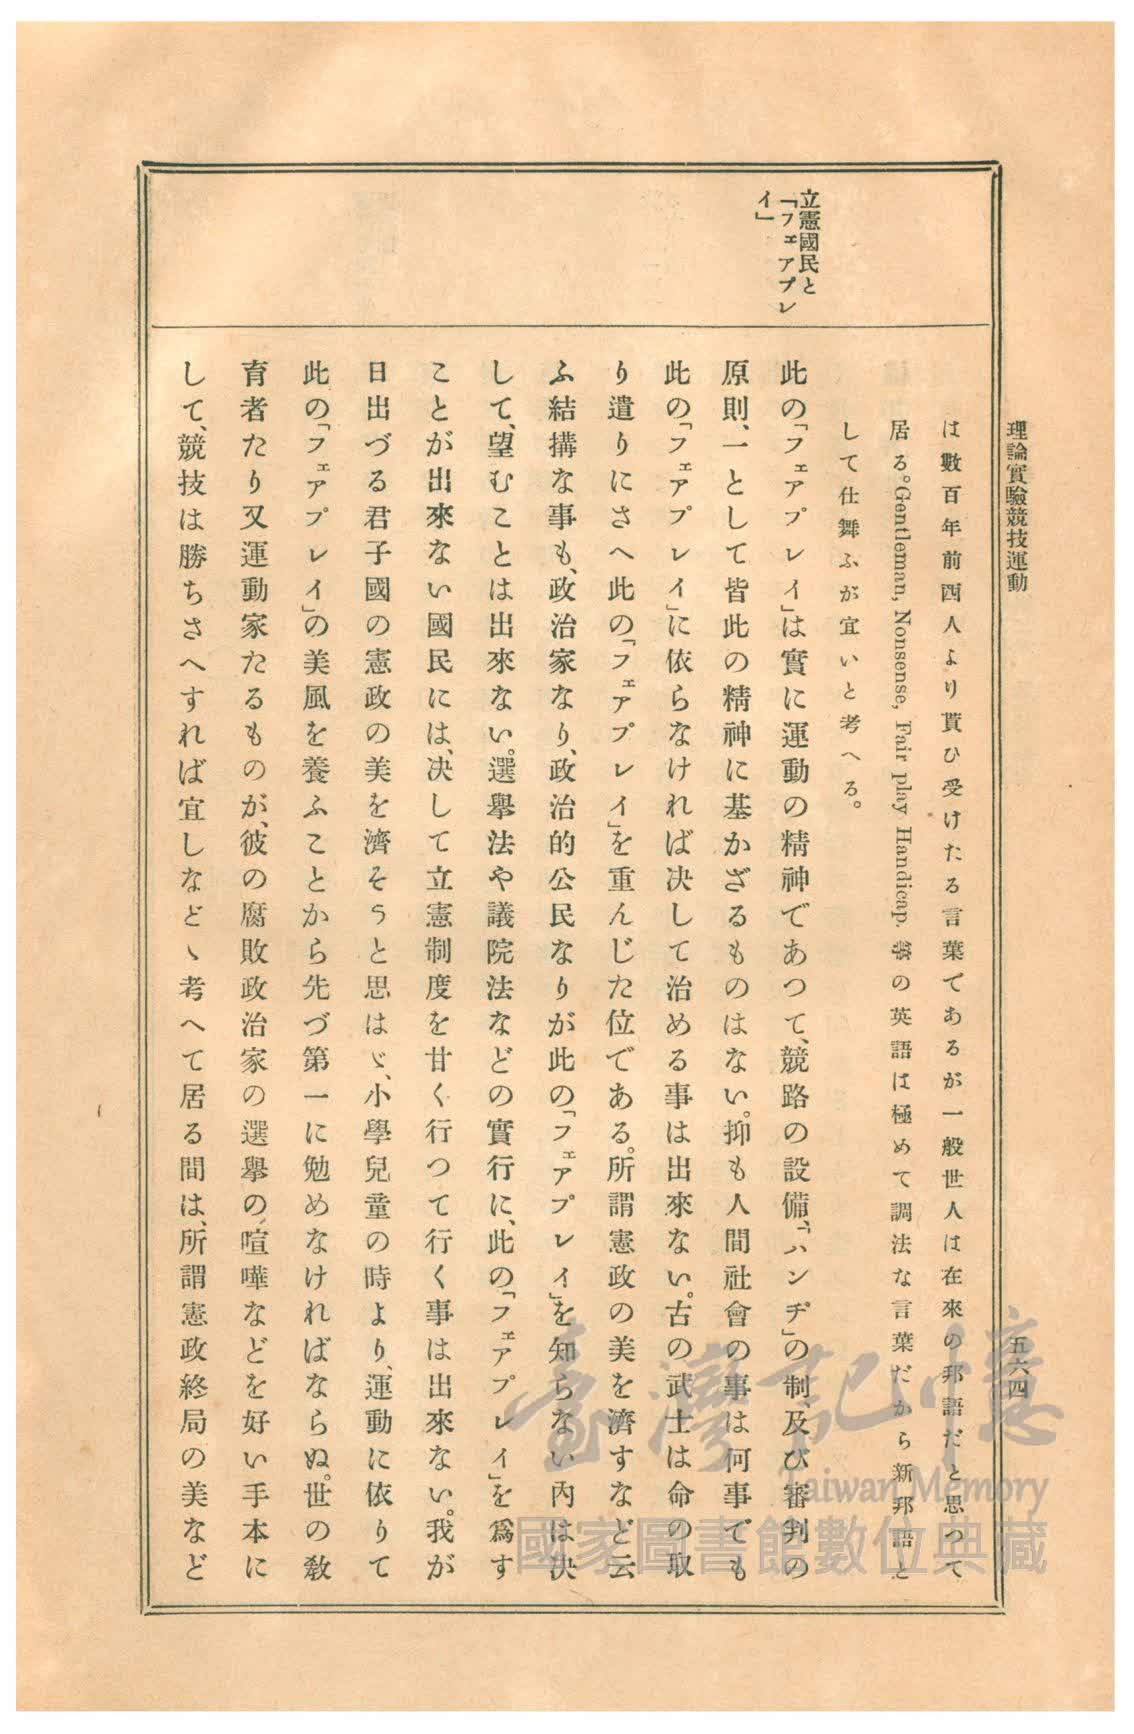 理論實驗競技運動
五六四
は數百年前西人より貰ひ受けたる言葉であるが一般世人は在來の邦語だと思つて
居る。Gentleman, Nonsense, Fair play Handicap. 等の英語は極めて調法な言葉だから新邦語と
して仕舞ふが宜いと考へる。
立憲國民と
「フェアプレ
イ」
此の「フェアプレイ」は實に運動の精神であつて、競路の設備、「ハンヂ」の制、及び審判の
原則、一として皆此の精神に基かざるものはない。抑も人間社會の事は何事でも
此の「フェアプレイ」に依らなければ决して治める事は出來ない。古の武士は命の取
り遣りにさへ此の「フェアプレイ」を重んじた位である。所謂憲政の美を濟すなど云
ふ結搆な事も、政治家なり、政治的公民なりが此の「フェアプレイ」を知らない內は决
して、望むことは出來ない。選擧法や議院法などの實行に、此の「フェアプレイ」を爲す
ことが出來ない國民には、决して立憲制度を甘く行つて行く事は出來ない。我が
日出づる君子國の憲政の美を濟そうと思はゞ、小學兒童の時より、運動に依りて
此の「フェアプレイ」の美風を養ふことから先づ第一に勉めなければならぬ。世の敎
育者たり又運動家たるものが、彼の腐敗政治家の選擧の喧嘩などを好い手本に
して、競技は勝ちさへすれば宜しなどゝ考へて居る間は、所謂憲政終局の美など
臺灣記憶
Taiwan Memory
國家圖書館數位典藏